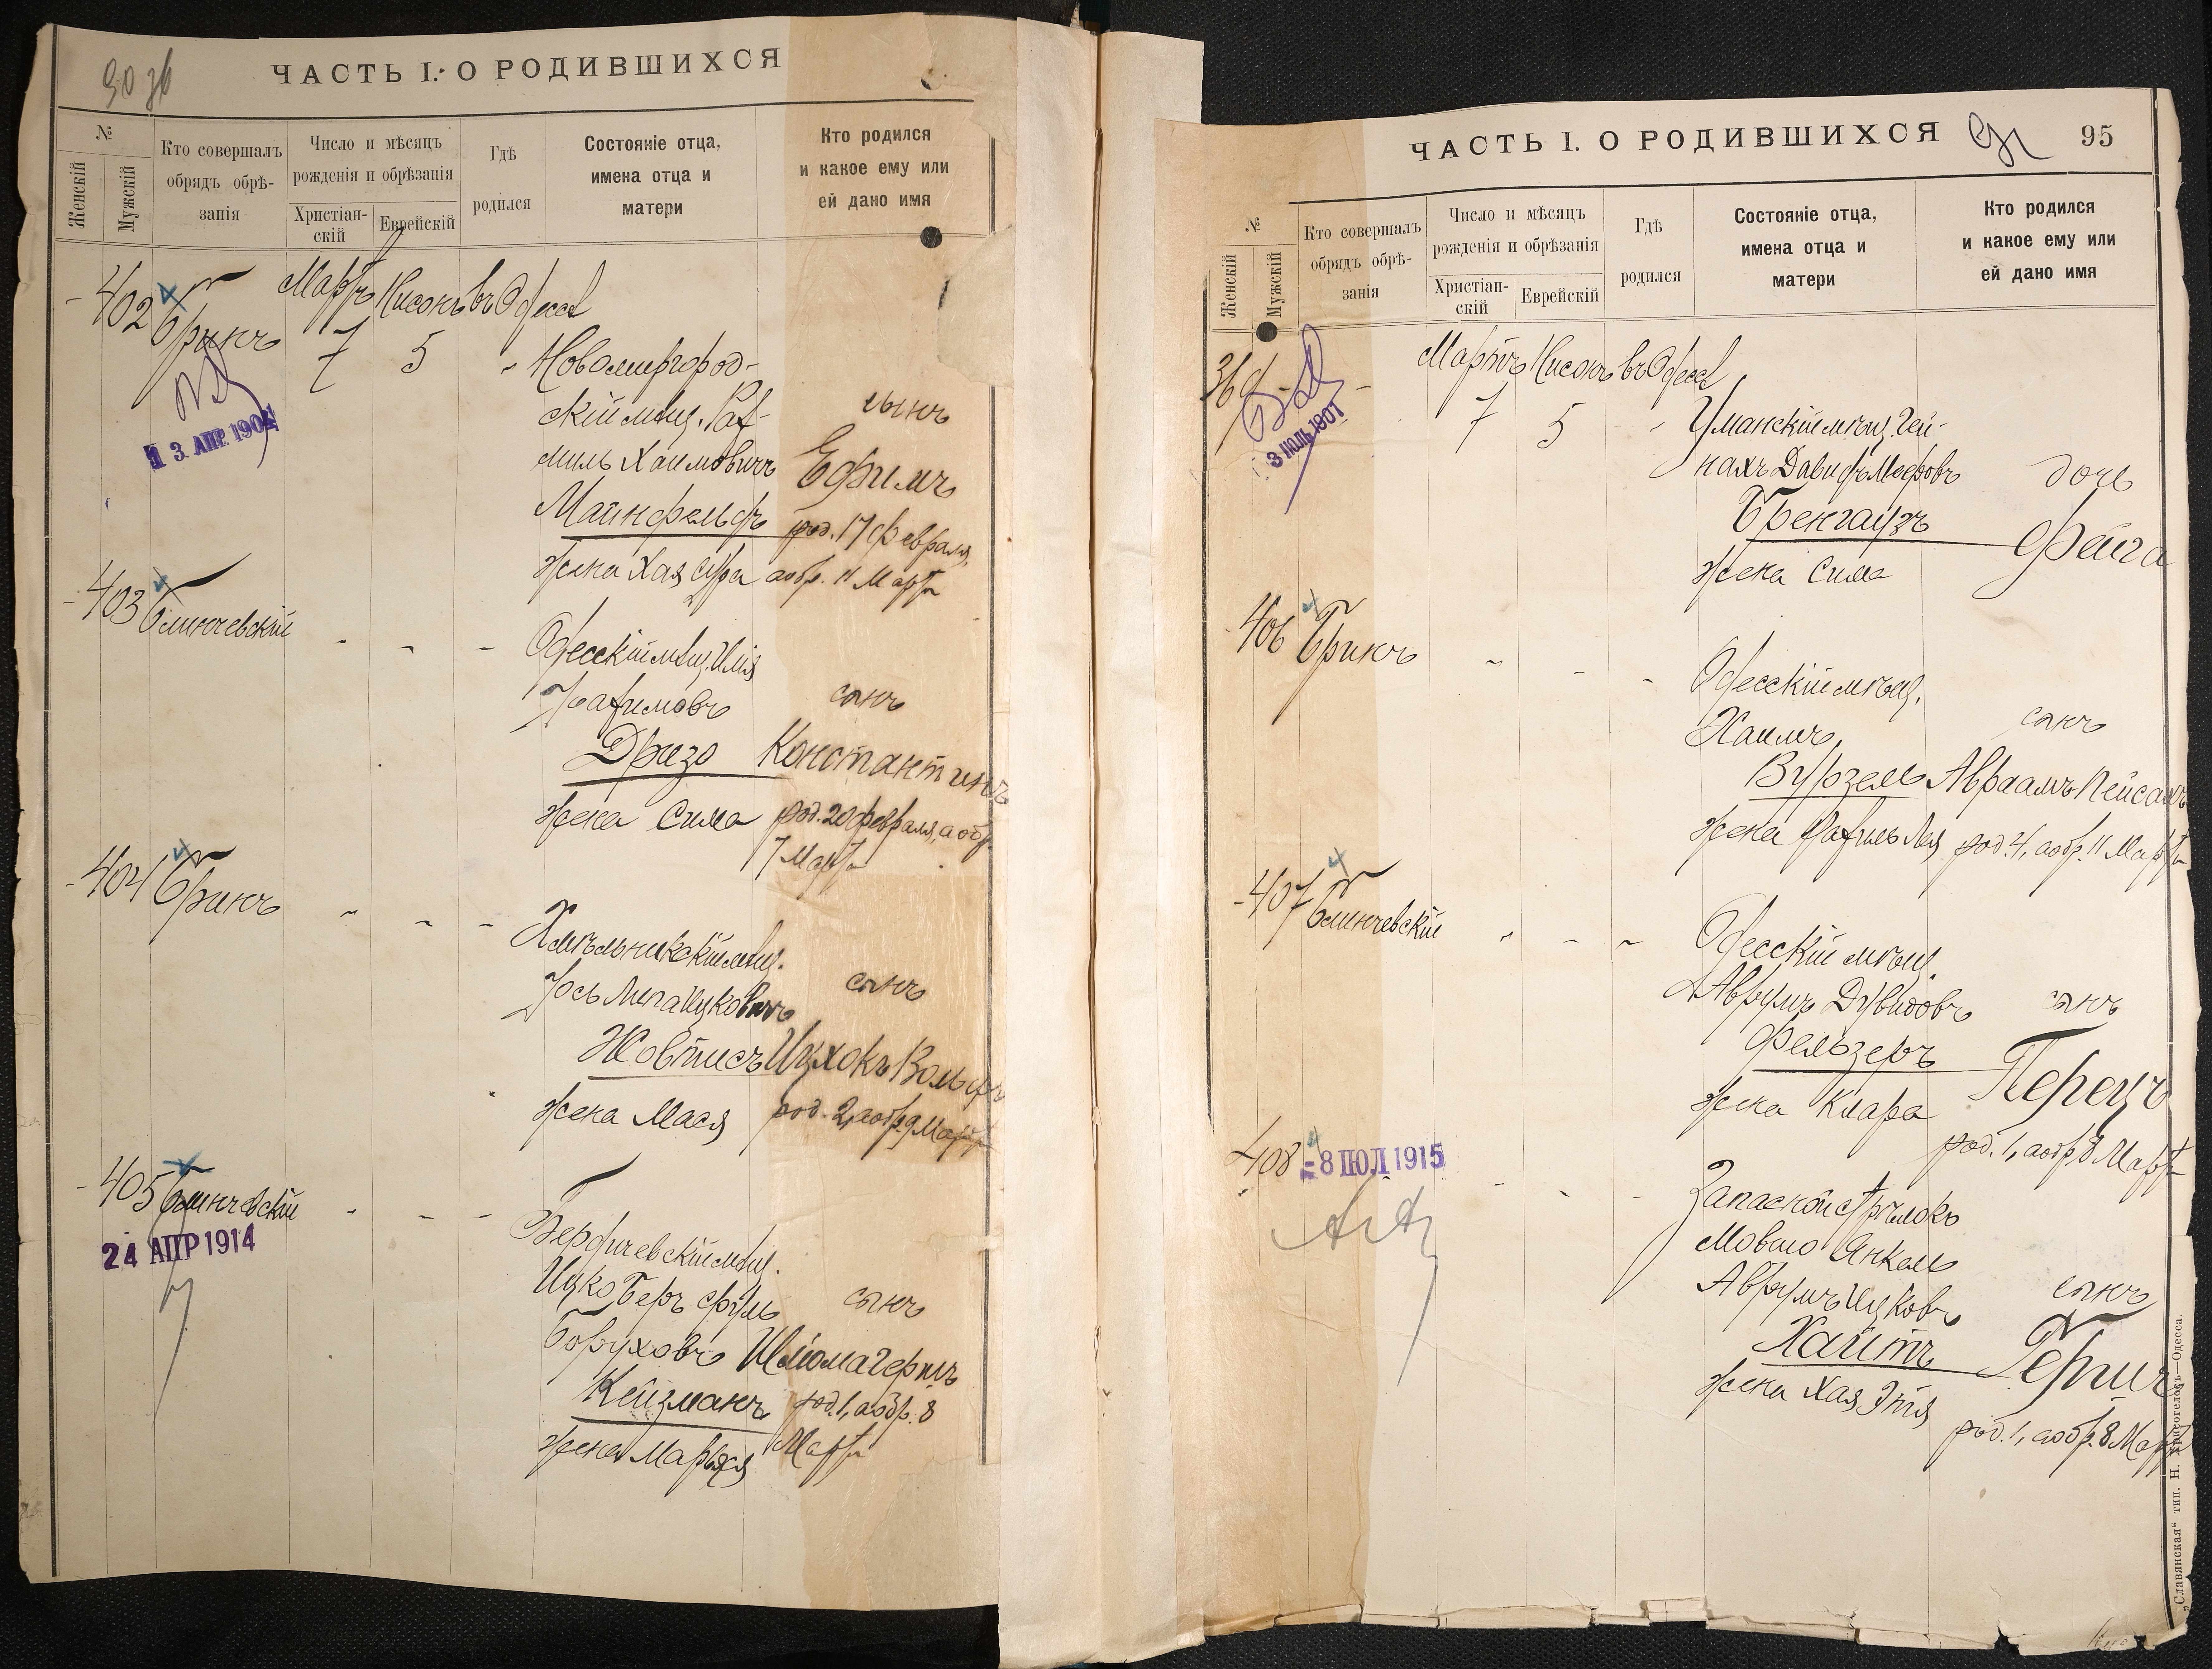 ЧАСТЬ I. О РОДИВШИХСЯ
№
Женскій
Мужскій
Кто совершалъ
обрядъ обрѣ-
занія
Число и мѣсяцъ
рожденія и обрѣзанія
Христіан-
скій
Еврейскій
Гдѣ
родился
Состояніе отца,
имена отца и
матери
Кто родился
и какое ему или
ей дано имя
402 Бринъ
Мартъ Нисонъ въ Одессѣ
7 5
Новомиргород-
скій мѣщ.
Хаимовичъ
Маинфельдъ
жена Хая Сура
сынъ
Ефимъ
род. 17 февраля,
а обр. 11 Марта
13 АПР. 1904
403 Блинчевскій
Одесскій мѣщ. Илія
Дризо
жена Сима
сынъ
Константинъ
род. 20 февраля, а обр.
7 Марта
404 Бринъ
Хмѣльникскій мѣщ.
Іось Липа Ицковичъ
Жовтисъ
жена Мася
сынъ
Ицхокъ Вольфъ
род. 2, а обр. 9 Марта
405 Блинчевскій
24 АПР 1914
Бердичевскій мѣщ.
Ицко Беръ Сруль
Боруховъ
Кейзманъ
жена Марьяся
сынъ
Шлома Гершъ
род. 1, а обр. 8
Марта
ЧАСТЬ I. О РОДИВШИХСЯ
95
№
Женскій
Мужскій
Кто совершалъ
обрядъ обрѣ-
занія
Число и мѣсяцъ
рожденія и обрѣзанія
Христіан-
скій
Еврейскій
Гдѣ
родился
Состояніе отца,
имена отца и
матери
Кто родился
и какое ему или
ей дано имя
Мартъ Нисонъ въ Одессѣ
7 5
3 ІЮЛЬ 1901
Уманскій мѣщ. Гей-
нахъ Давидъ Мееровъ
Бренгаузъ
жена Сима
дочь
Фейга
406 Бринъ
Одесскій мѣщ.
Хаимъ
Вурзель
жена Рахиль Лея
сынъ
Авраамъ Пейсахъ
род. 4, а обр. 11 Марта
407 Блинчевскій
Одесскій мѣщ.
Аврумъ Дувидовъ
Фельзеръ
жена Клара
сынъ
Перецъ
род. 1, а обр. 8 Марта
408
8 ІЮЛ 1915
Запасной стрѣлокъ
Мовшо Янкель
Аврумъ Ицковъ
Хаитъ
жена Хая Этя
сынъ
Гершъ
род. 1, а обр. 8 Марта
„Славянская“ тип. Н. Хрисогелосъ—Одесса.